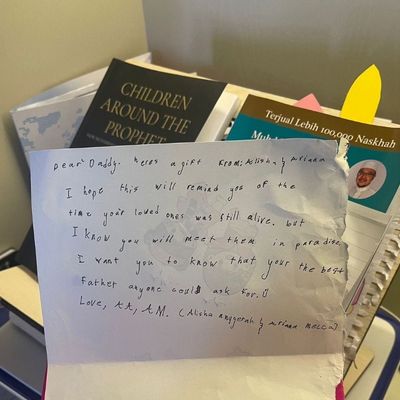 CHILDREN
AROUND THE
PROPHET
Terjual Lebih 100,000 Naskhah
Dear Daddy. heres a gift From: Alisha & Arianna
I hope this will remind you of the
time your loved ones was still alive. but
I know you will meet them in paradise
I want you to know that your the best
Father anyone could ask for.
Love, AA, AM. (Alisha anggerah & Arianna Mecca)